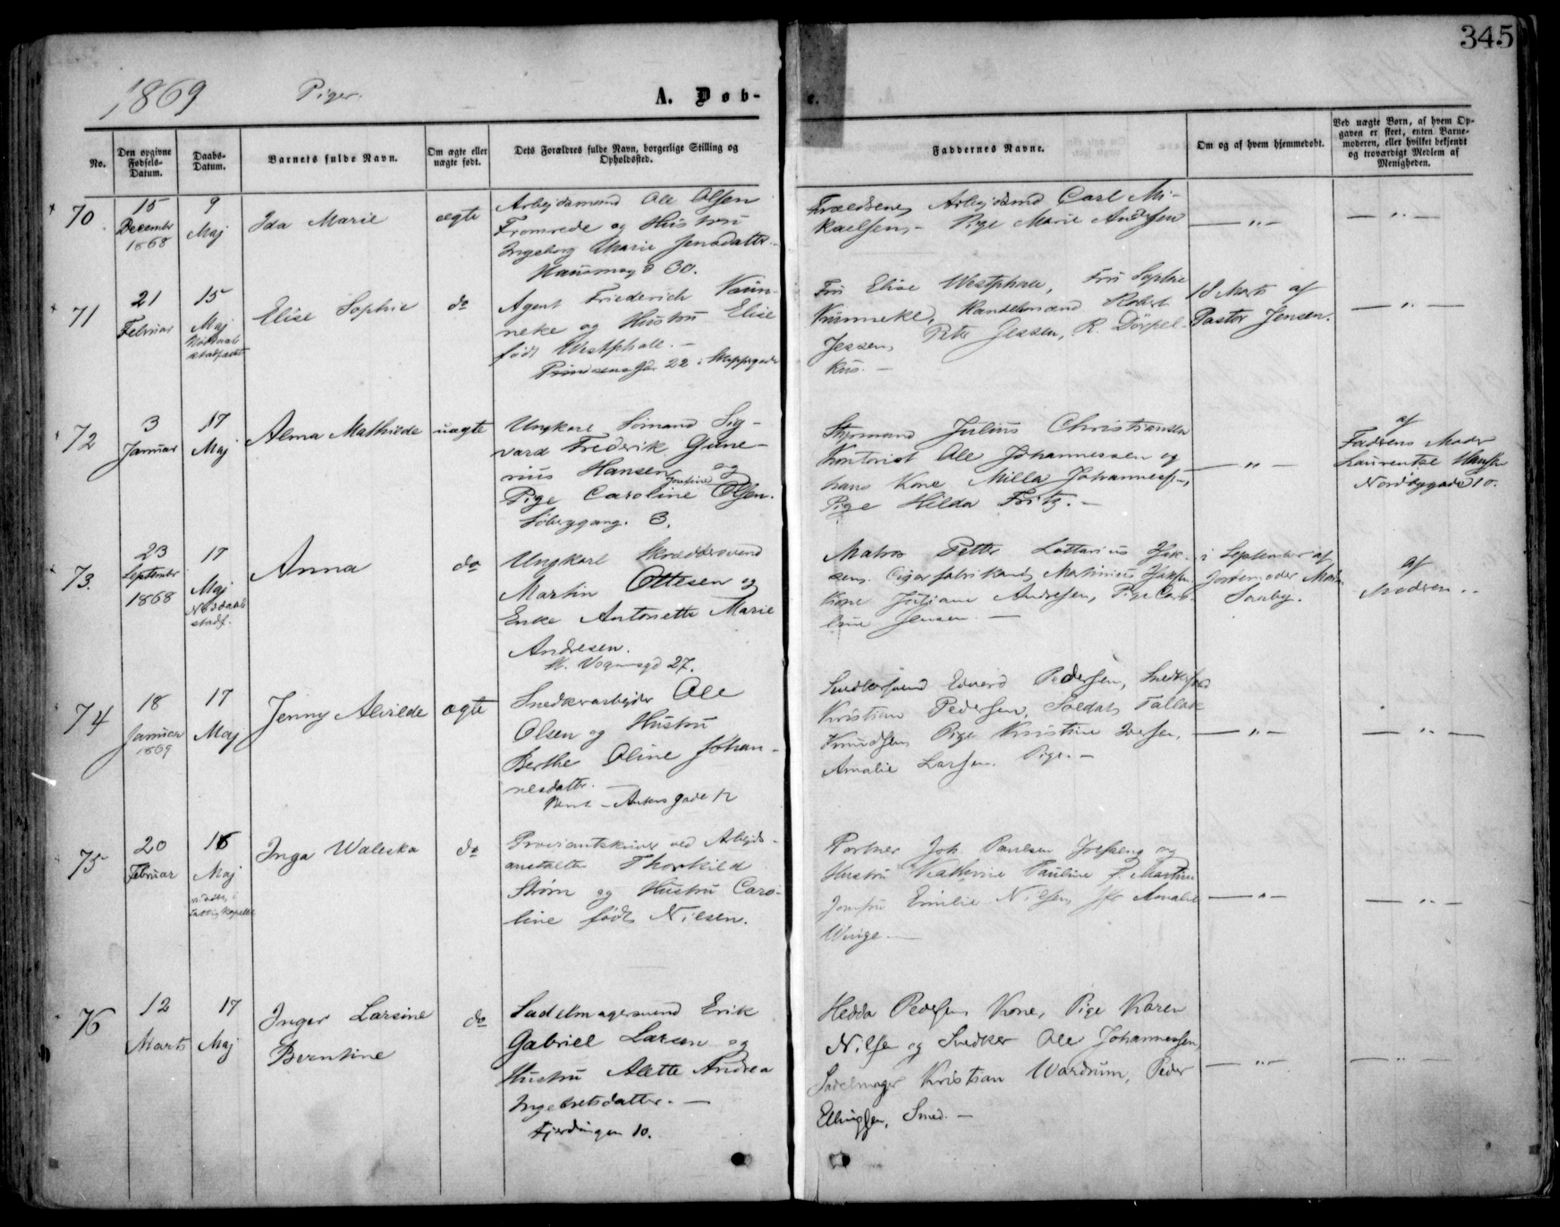 345
1869 Piger.
A. Døb-
e.
No.
Den opgivne Fødsels-Datum.
Daabs-Datum.
Barnets fulde Navn.
Om ægte eller uægte født.
Dets Forældres fulde Navn, borgerlige Stilling og Opholdssted.
Faddernes Navne.
Om og af hvem hjemmedøbt.
Ved uægte Børn, af hvem Opgaven er skeet, enten Barnemoderen, eller hvilket bekjendt og troværdigt Medlem af Menigheden.
70
15 Decembr 1868
9 Maj
Ida Marie
ægte
Arbejdsmand Ole Olsen
Fromrede og Hustru
Ingeborg Marie Jensdatter.
30.
Forældrene, Arbejdsmd Carl Mi-
kaelsen, Pige Marie Andersen
— „ —
— „ —
71
21 Februar
15 Maj
Elise Sophie
do
Agent Friederich
neke og Hustru Elise
født Westphall. —
22
Fru Elise Westphall, Fru Sophie
Handelsmand Robert
Jessen, Peter Jessen, R. Dörpel-
kus. —
18 Marts af
Pastor Jensen.
— „ —
72
3 Januar
17 Maj
Alma Mathilde
uægte
Ungkarl Sømand Sig-
vard Frederik Gune-
rius Hansen og
Pige Caroline Olsen.
3.
Styrmand Julius Christiansen
Kontorist Ole Johannessen og
hans Kone Milla Johanness-,
Pige Hilda Fritz. —
— „ —
af
Faderens Moder
Laurentse Hansen
Nordbygade 10.
73.
23 Septembr 1868
17 Maj
Anna
do
Ungkarl Skræddersvend
Martin Ottesen og
Enke Antonette Marie
Andresen.
27.
Matros Petter
sen. Cigarfabrikand Martinius
Kone Juliane Andresen, Pige Caro-
line Jensen. —
i September af
Jordemoder
af
Moderen
74
18 Januar 1869
17 Maj
Jenny Alvilde
ægte
Snedkerarbejder Ole
Olsen og Hustru
Berthe Oline Johan-
nesdatter. —
Bernt-Ankersgade 12
Snedkersvend Edvard Pedersen,
Kristian Pedersen, Soldat
Knudsen Pige Kristine Iversen,
Amalie Larsen Pige. —
— „ —
— „ —
75
20 Februar
16 Maj
Inga Waleska
do
Proviantskriver ved Arbejds-
anstalten Thorkild
Strøm og Hustru Caro-
line født Nielsen.
Portner Joh. Paulsen og
Hustru Kathrine Pauline
Jomfru Emilie Nilsen, Jfr Amalie
Winge —
— „ —
— „ —
76
12 Marts
17 Maj
Inger Larsine
Berntine
do
Sadelmagersvend Erik
Gabriel Larsen og
Hustru Alette Andrea
Ingebretsdatter. —
Fjerdingen 10.
Hedda Pedersen Kone, Pige Karen
Nilsen og Snedker Ole Johannessen,
Sadelmager Kristian Wardrum, Peder
Ellingsen, Smed. —
— „ —
— „ —